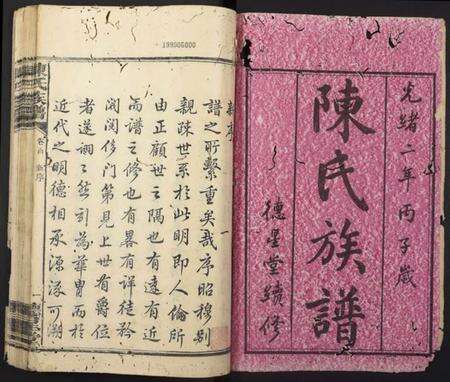 光緒二年丙子歲
陳氏族譜
德星堂續修
新序
譜之所繫重矣哉序昭穆別
親疎世系於此明即人倫所
由正顧世之隔也有遠有近
而譜之修也有畧有詳徒矜
閥閱侈門第見上世有爵位
者遂詡詡然引為華冑而於
近代之明德相承源流可溯
卷首 新序
199006000